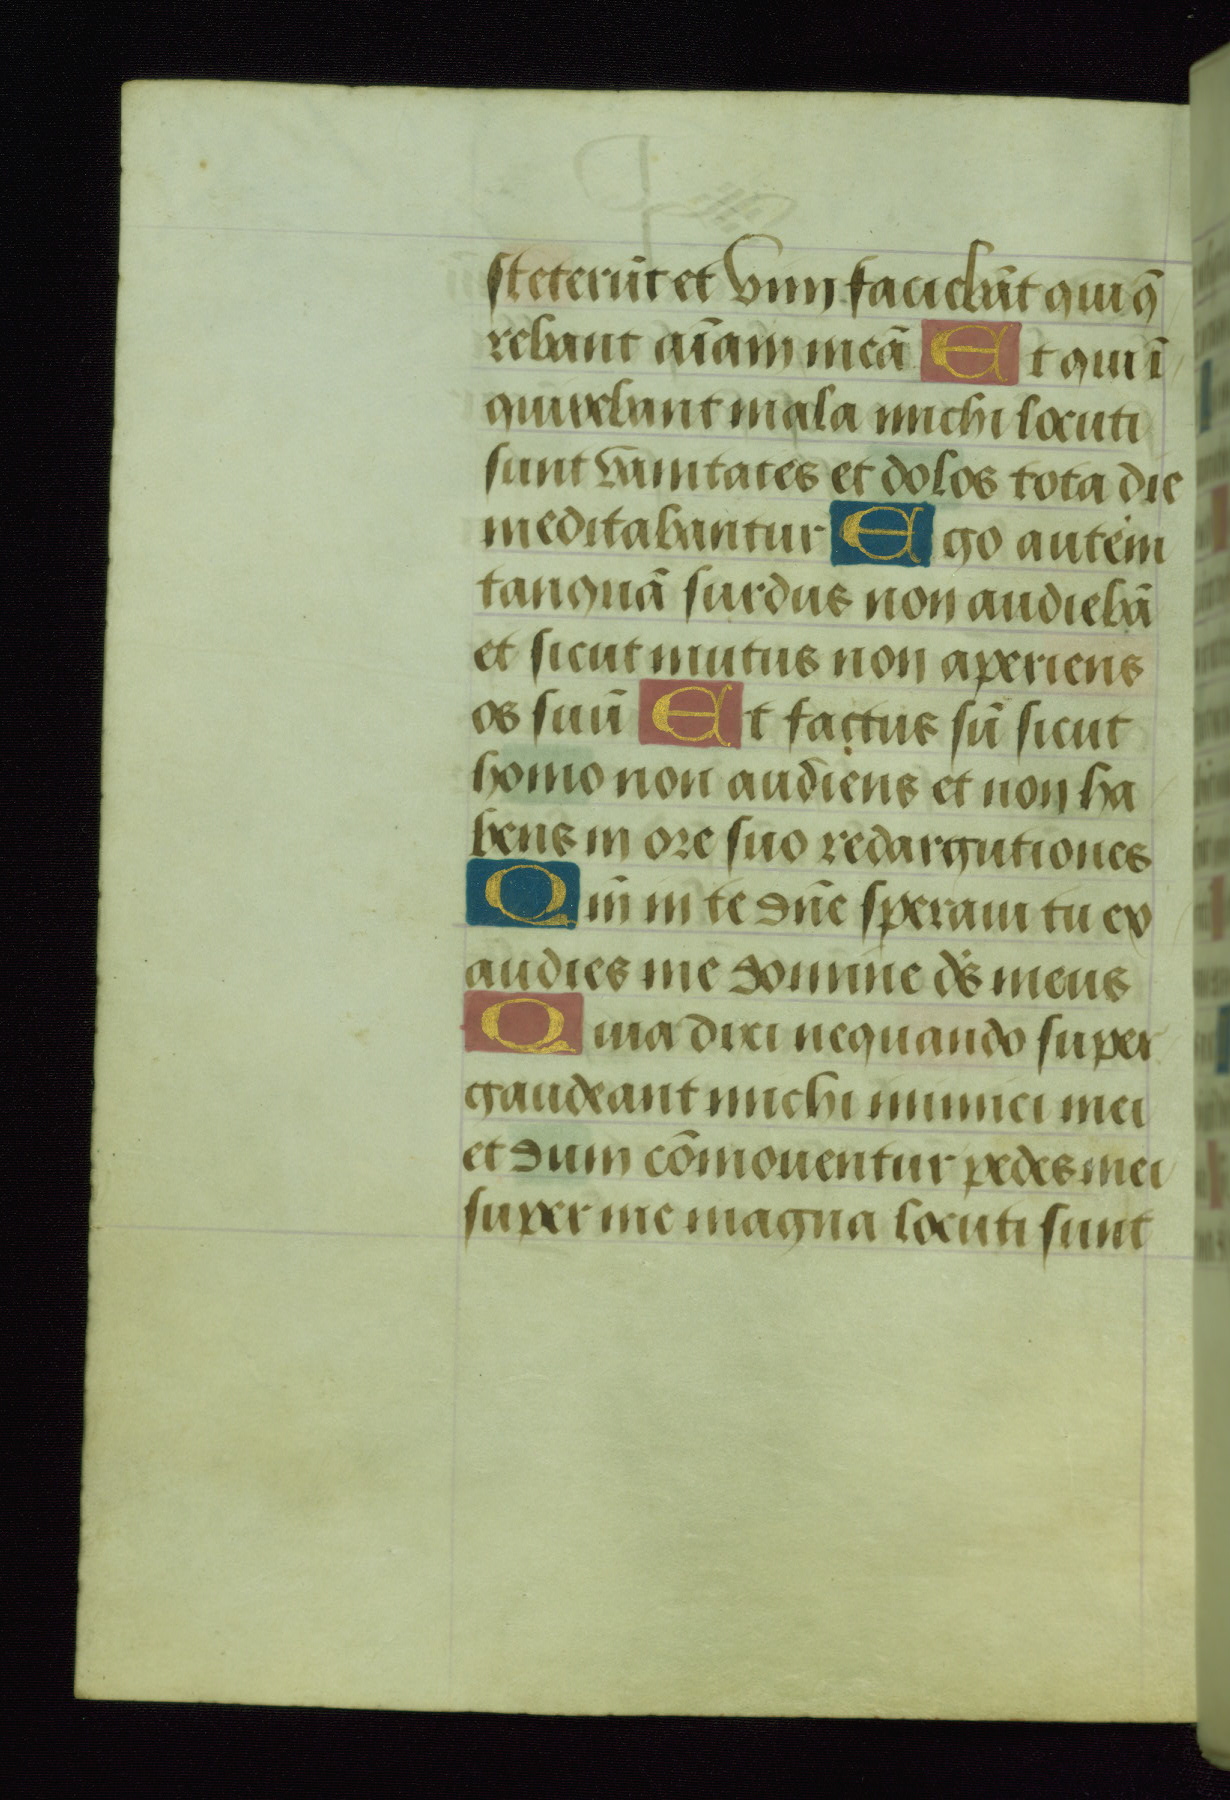 steterūt et vim faciebāt qui q̄
rebant aīam meā Et qui ī
quirebant mala michi locuti
sunt vanitates et dolos tota die
meditabantur Ego autem
tanquā surdus non audiebā
et sicut mutus non aperiens
os suū Et factus sū sicut
homo non audiens et non ha
bens in ore suo redargutiones
Qm̄ in te dn̄e speraui tu ex
audies me domine ds̄ meus
Quia dixi nequando super
gaudeant michi inimici mei
et dum cōmouentur pedes mei
super me magna locuti sunt